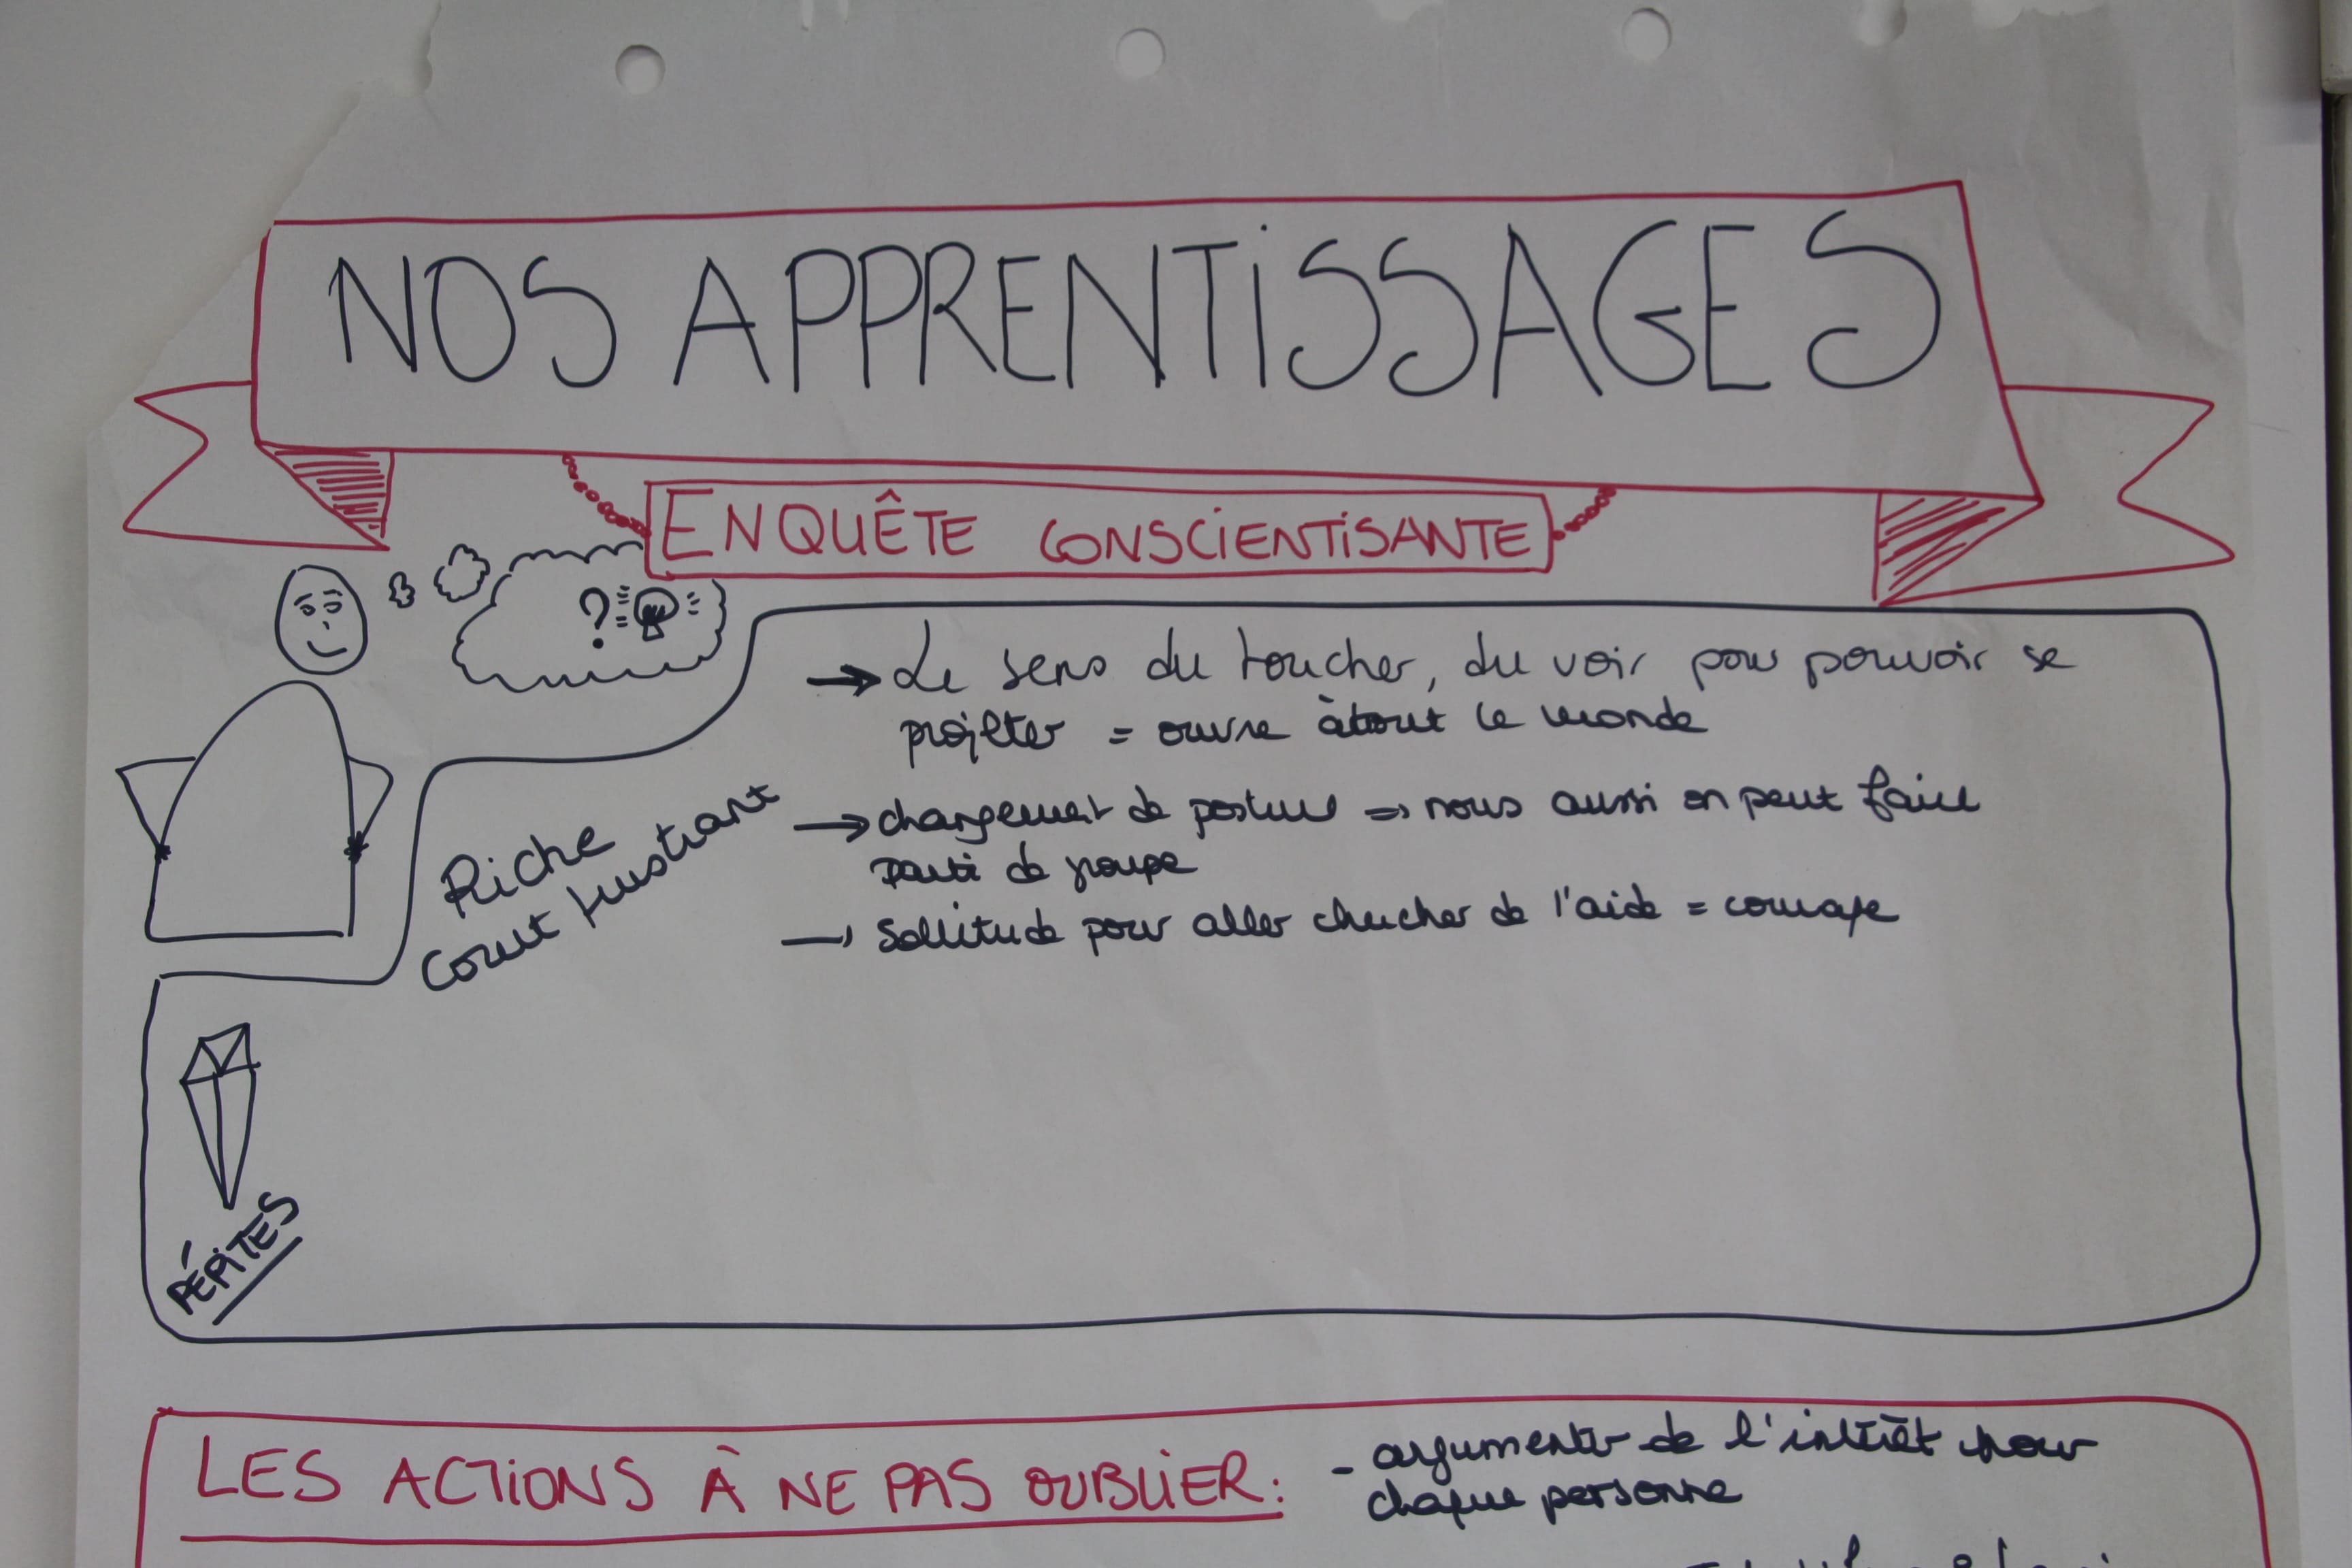 NOS APPRENTISSAGES
ENQUÊTE CONSCIENTISANTE
?
→ Le sens du toucher, du voir pour pouvoir se
projeter = ouvre à tout le monde
Riche
court frustrant
→ changement de posture => nous aussi on peut faire
parti de groupe
→ Sollitude pour aller chercher de l'aide = courage
PÉPITES
LES ACTIONS À NE PAS OUBLIER :
- argumenter de l'intérêt pour
chaque personne